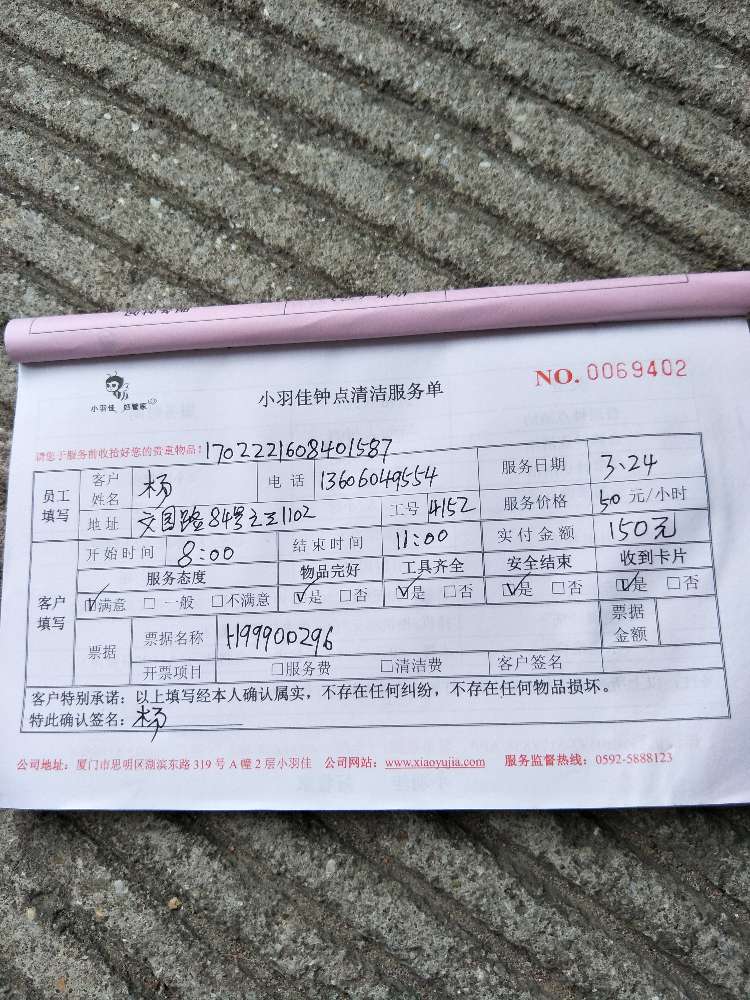 小羽佳 好管家
小羽佳钟点清洁服务单
NO. 0069402
请您于服务前收拾好您的贵重物品!
1702221608401587
员工填写
客户姓名 杨 电话 13606049554 服务日期 3.24
地址 交国路84号之三1102 工号 4152 服务价格 50 元/小时
客户填写
开始时间 8:00 结束时间 11:00 实付金额 150元
服务态度 物品完好 工具齐全 安全结束 收到卡片
☑满意 □一般 □不满意 ☑是 □否 ☑是 □否 ☑是 □否 ☑是 □否
票据 票据名称 H99900296 票据金额
开票项目 □服务费 □清洁费 客户签名
客户特别承诺:以上填写经本人确认属实,不存在任何纠纷,不存在任何物品损坏。
特此确认签名:杨
公司地址:厦门市思明区湖滨东路 319 号 A 幢 2 层小羽佳 公司网站:www.xiaoyujia.com 服务监督热线:0592-5888123